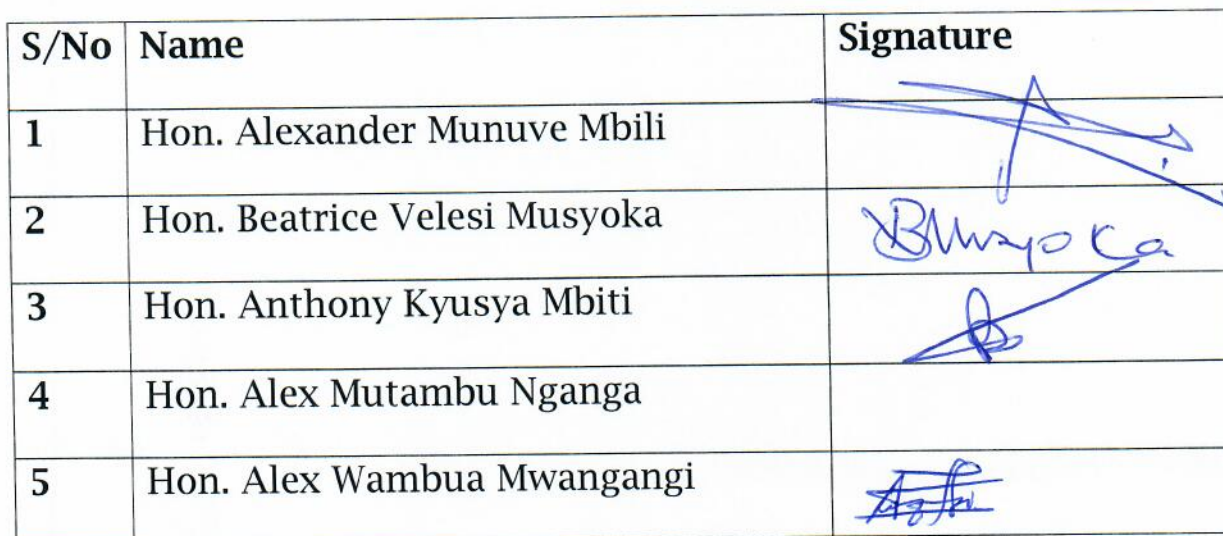 S/No Name Signature
1 Hon. Alexander Munuve Mbili
2 Hon. Beatrice Velesi Musyoka BMusyoka
3 Hon. Anthony Kyusya Mbiti
4 Hon. Alex Mutambu Nganga
5 Hon. Alex Wambua Mwangangi